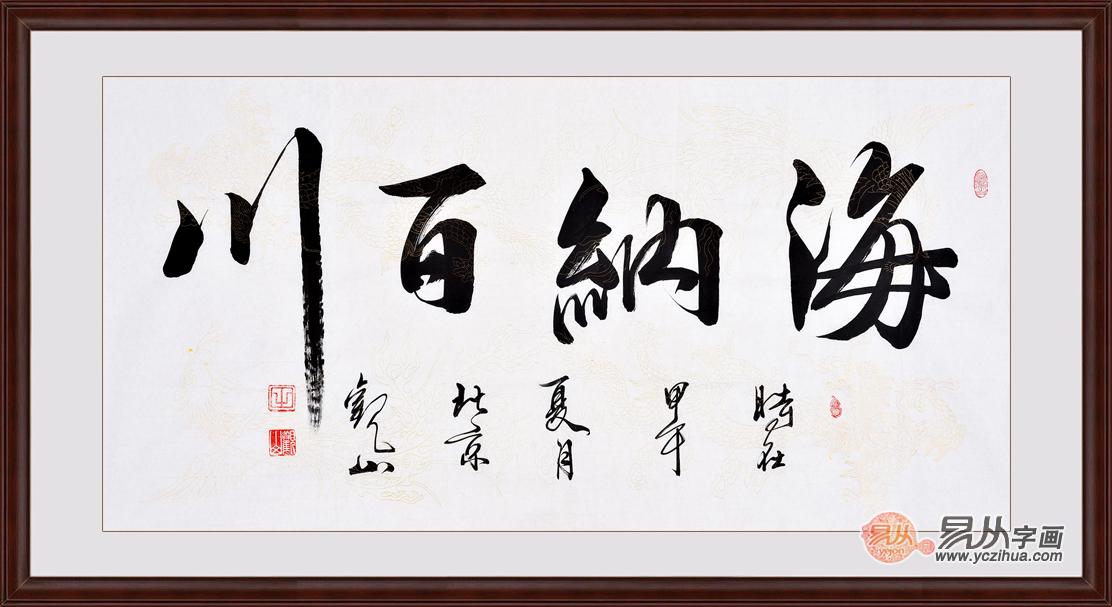 海納百川
時在甲午夏月北京觀山
易从字画
易从
yicong
www.yczihua.com